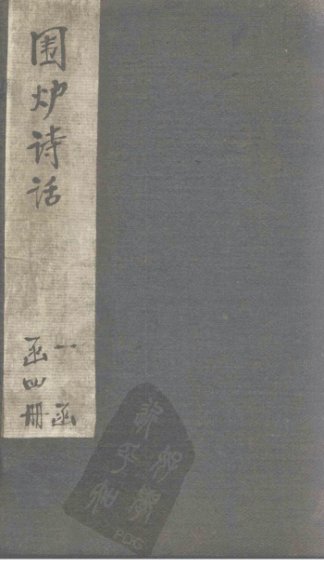 围炉诗话
一函
函四册
PDG